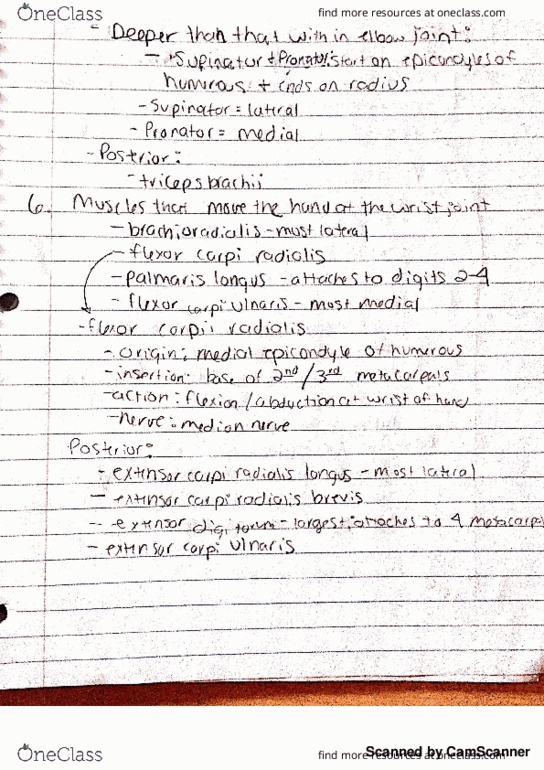 OneClass
find more resources at oneclass.com
- Deeper than that with in elbow joint:
- *Supinator + Pronator: start on epicondyles of
humerous + ends on radius
- Supinator = lateral
- Pronator = medial
- Posterior:
- triceps brachii
6. Muscles that move the hand at the wrist joint
- brachioradialis - most lateral
- flexor carpi radialis
- palmaris longus - attaches to digits 2-4
- flexor carpi ulnaris - most medial
- flexor carpi radialis
- origin: medial epicondyle of humerous
- insertion: base of 2nd/3rd metacarpals
- action: flexion/abduction at wrist of hand
- nerve: median nerve
Posterior:
- extensor carpi radialis longus - most lateral
- extensor carpi radialis brevis
- extensor - largest, attaches to 4 metacarpa
- extensor carpi ulnaris
OneClass
find more resources at oneclass.com
Scanned by CamScanner